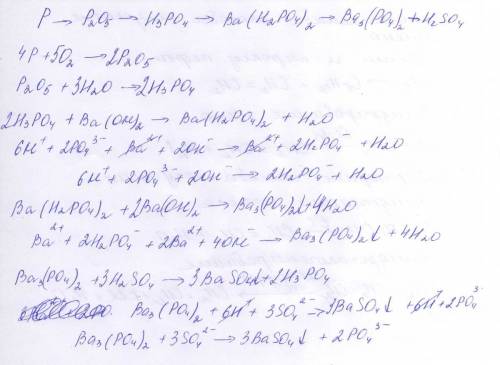 P → P₂O₅ → H₃PO₄ → Ba(H₂PO₄)₂ → Ba₃(PO₄)₂ + H₂SO₄
4P + 5O₂ → 2P₂O₅
P₂O₅ + 3H₂O → 2H₃PO₄
2H₃PO₄ + Ba(OH)₂ → Ba(H₂PO₄)₂ + H₂O
6H⁺ + 2PO₄³⁻ + Ba²⁺ + 2OH⁻ → Ba²⁺ + 2H₂PO₄⁻ + H₂O
6H⁺ + 2PO₄³⁻ + 2OH⁻ → 2H₂PO₄⁻ + H₂O
Ba(H₂PO₄)₂ + 2Ba(OH)₂ → Ba₃(PO₄)₂↓ + 4H₂O
Ba²⁺ + 2H₂PO₄⁻ + 2Ba²⁺ + 4OH⁻ → Ba₃(PO₄)₂↓ + 4H₂O
Ba₃(PO₄)₂ + 3H₂SO₄ → 3BaSO₄↓ + 2H₃PO₄
Ba₃(PO₄)₂ + 6H⁺ + 3SO₄²⁻ → 3BaSO₄↓ + 6H⁺ + 2PO₄³⁻
Ba₃(PO₄)₂ + 3SO₄²⁻ → 3BaSO₄↓ + 2PO₄³⁻